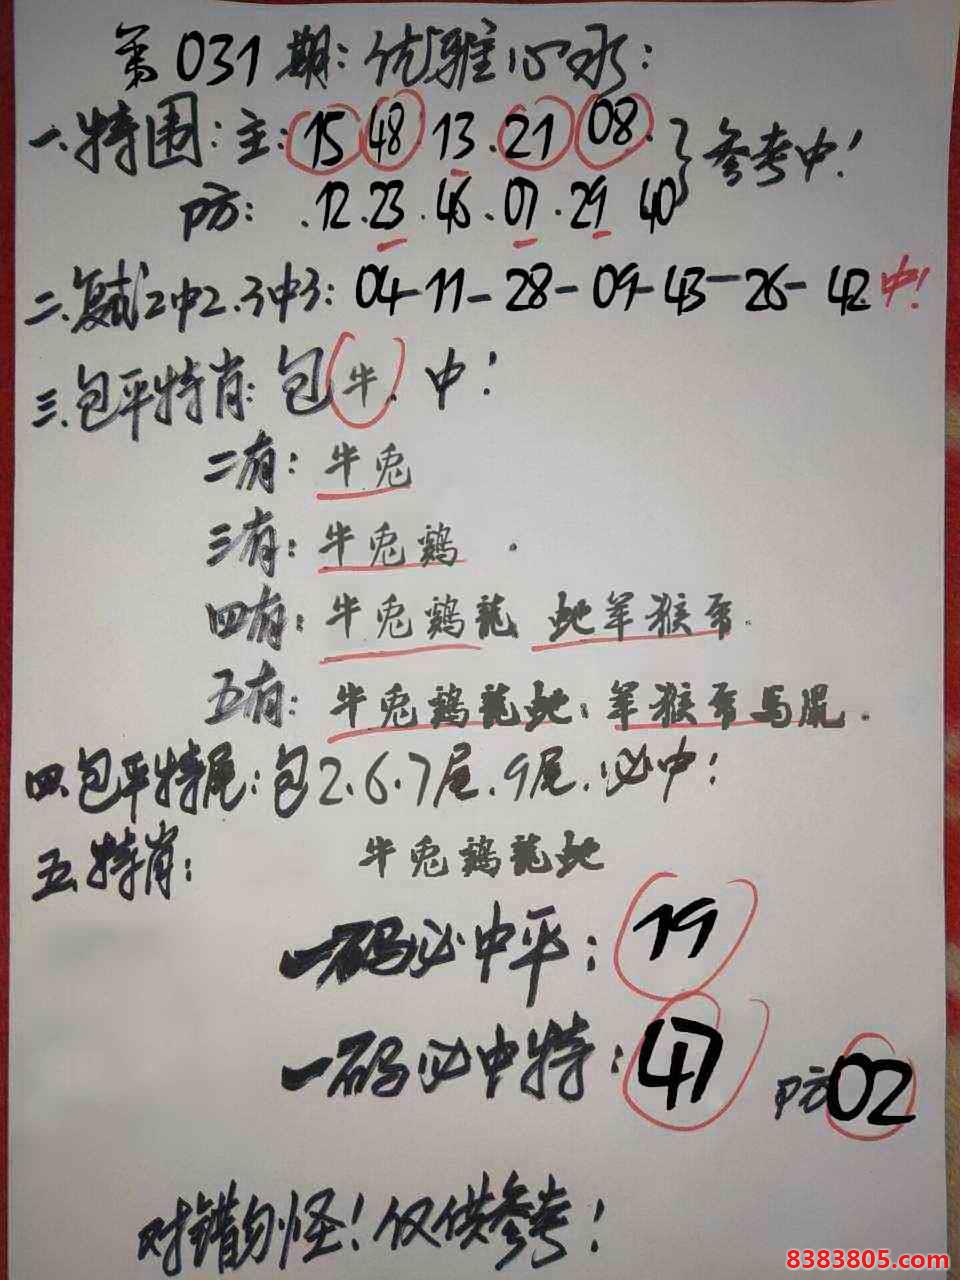 第031期:优雅心水:
一.特围:主:15 48.13.21 08.}参考中!
防:.12.23.46.07.29 40
二.复试2中2.3中3:04-11-28-09-43-26-42中!
三.包平特肖:包牛.中!
二有:牛兎
三有:牛兎鷄.
四有:牛兎鷄龍 蛇羊猴
五有:牛兎鷄龍蛇:羊猴 馬鼠.
四.包平特尾:包2.6.7尾.9尾.必中!
五.特肖:牛兎鷄龍蛇
一码必中平:19
一码必中特:47 防02
对错勿怪!仅供参考!
8383805.com